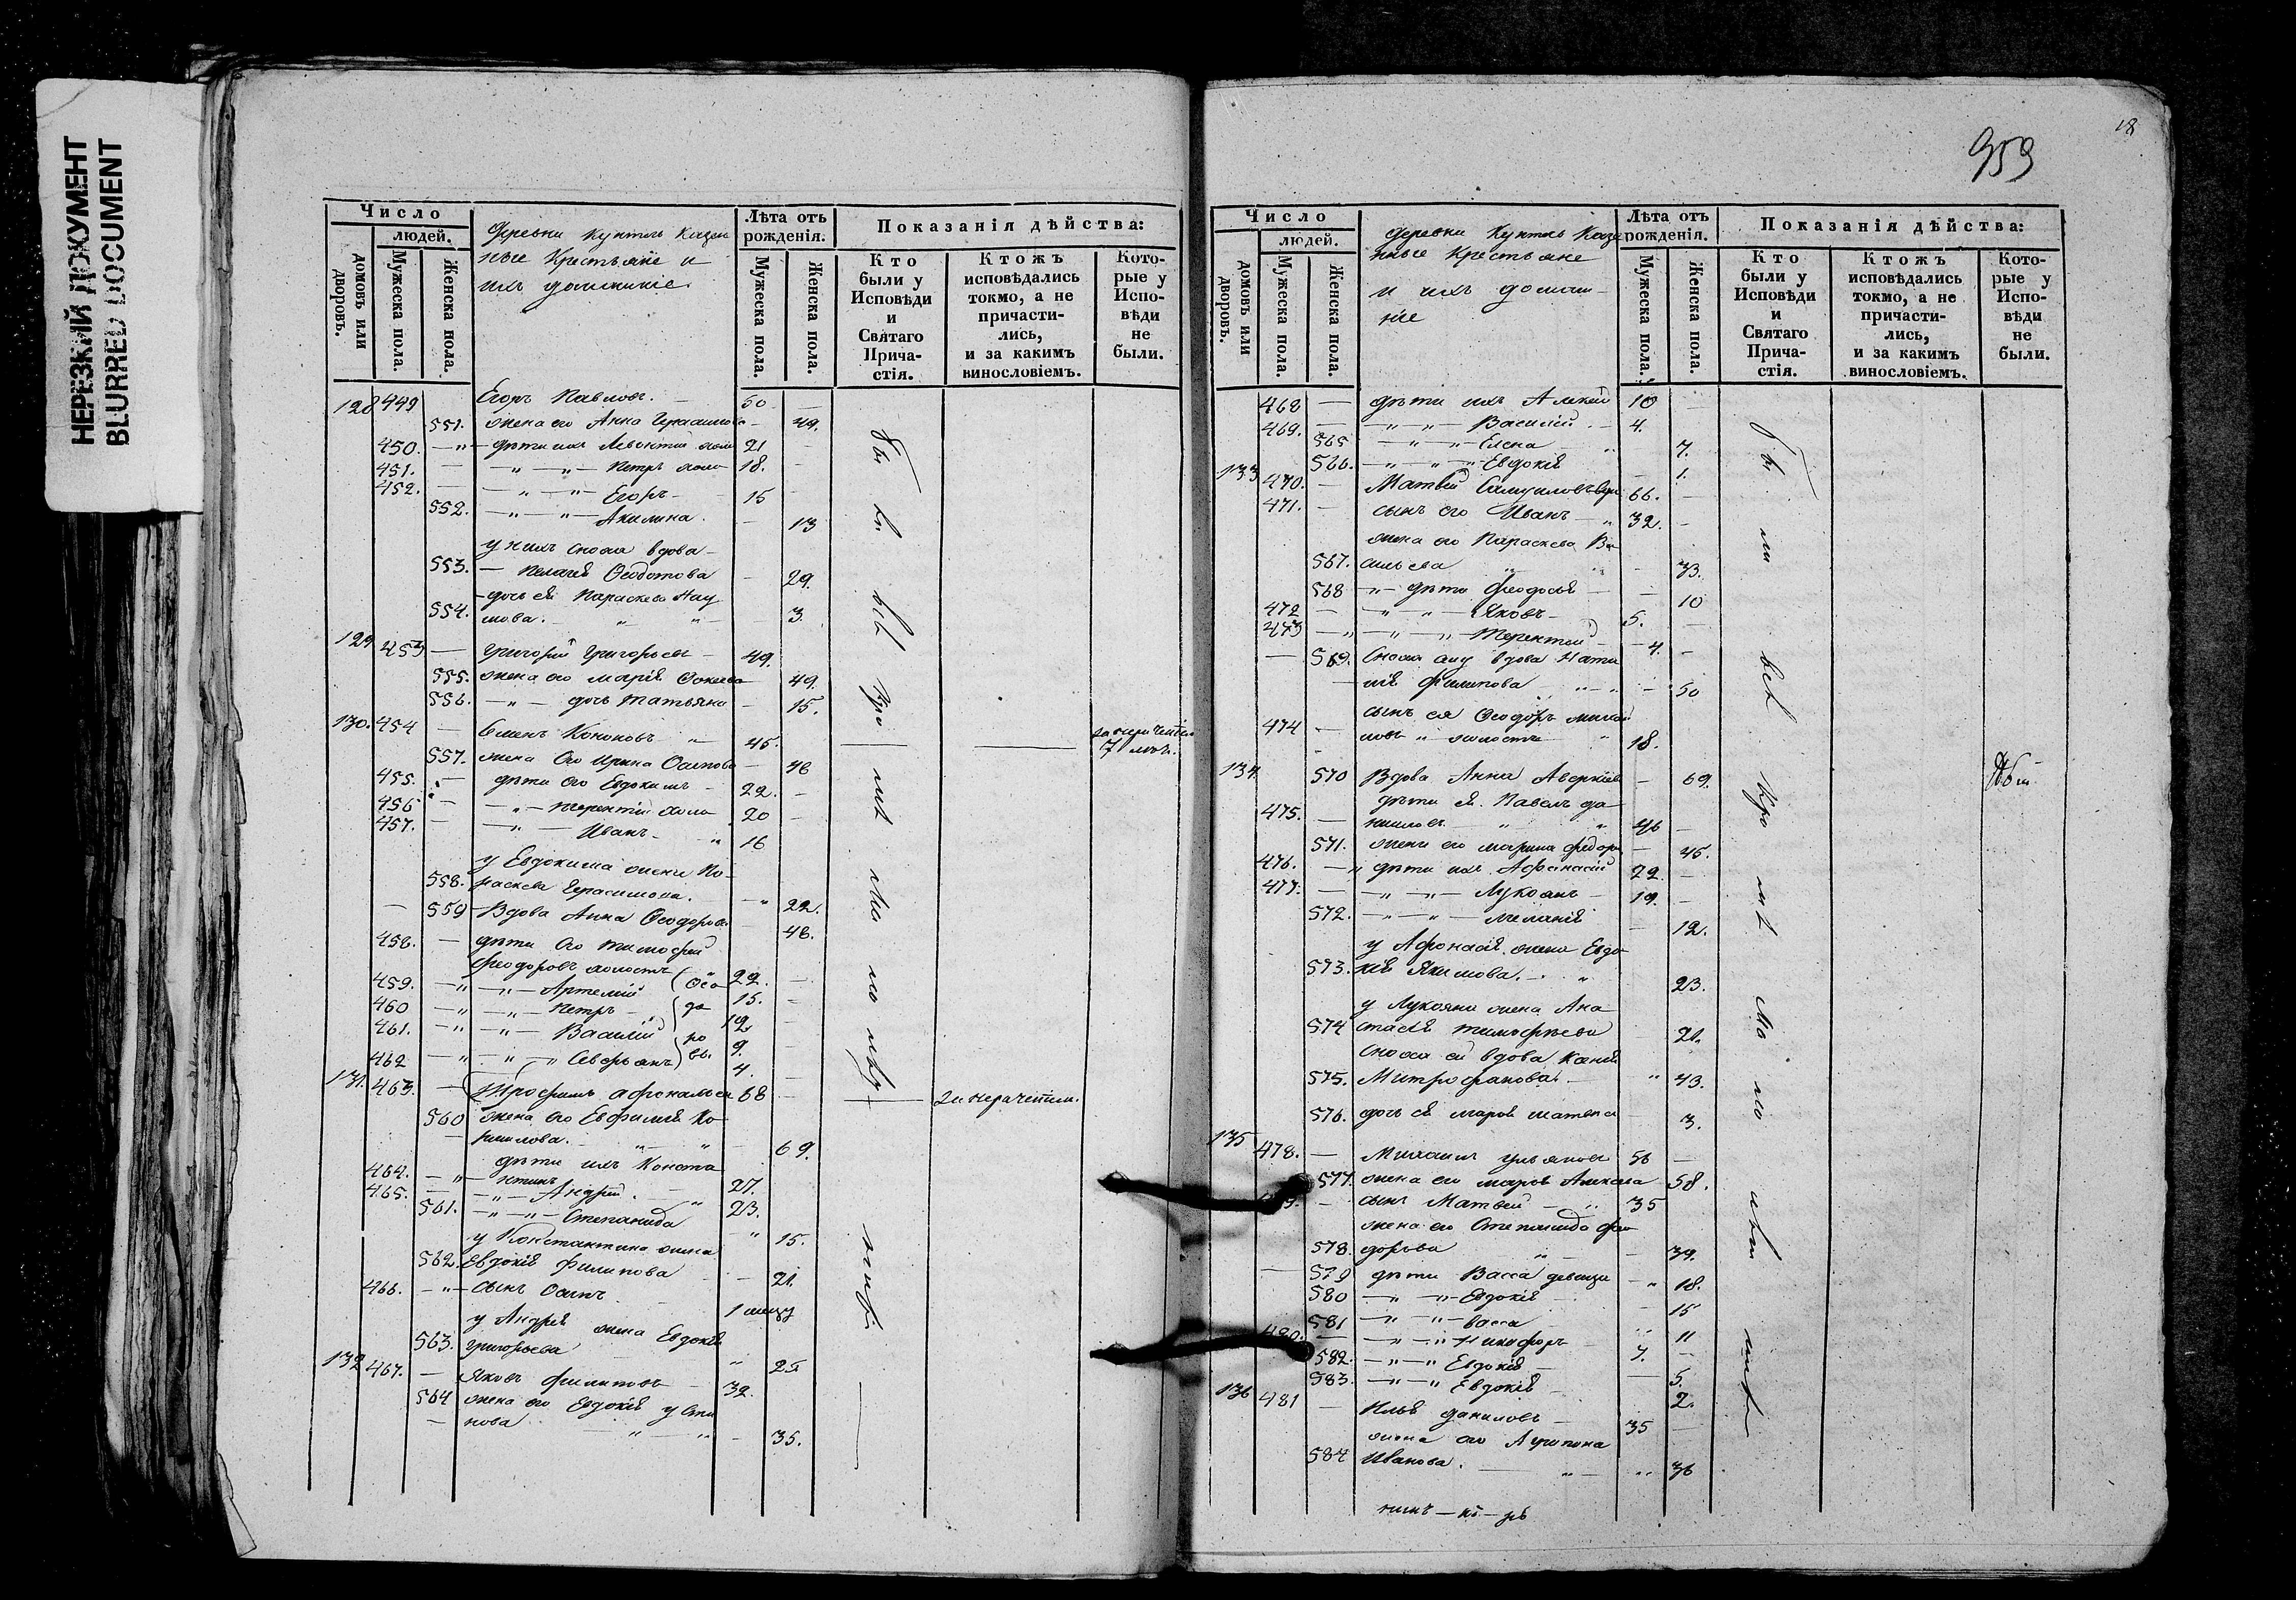 НЕРЕЗКИЙ ДОКУМЕНТ
BLURRED DOCUMENT
Число
людей.
домовъ или дворовъ.
Мужеска пола.
Женска пола.
Деревни Казен
ные Крестьяне и
ихъ домашніе
Лѣта отъ рожденія.
Мужеска пола.
Женска пола.
Показанія дѣйства:
Кто были у Исповѣди и Святаго Прича-стія.
Ктожъ исповѣдались токмо, а не причасти-лись, и за какимъ винословіемъ.
Кото-рые у Испо-вѣди не были.
128 449 Егоръ Павловъ. — 50 —
551. жена его Анна Герасимова — 49.
450. —„— дѣти ихъ Леонтій холо 21 —
451. — „ — „ — Петръ холо 18. —
452. — „ — „ — Егоръ — 15 —
552. — „ — „ — Акилина. — 13
у нихъ сноха вдова —
553. — Пелагея Ѳедотова — 29.
дочь ея Параскева Нау
554. мова. „ „ 3
129 453 — Григорій Григорьевъ — 49.
555. жена его Марія 49.
556. — „ — дочь Татьяна — 15.
130. 454 — Семенъ Кононовъ „ 45. —
557. жена его Ирина Осипова — 46
455. — дѣти его Евдокимъ — 22. —
456 — — „ — Терентій холо 20 —
457. — — „ — Иванъ — „ 16
у Евдокима жена Па-
558. раскева Герасимова. — „ 22.
— 559 Вдова Анна Ѳеодорова 46.
458. — дѣти его Тимофей
Феодоровъ холостъ „ 22. —
459. — „ — „ — Артемій (Ѳео 15. —
460 — „ — „ — Петръ — до 12
461. — „ — „ — Василій ро 9. —
462 — „ — „ — „ Северьянъ) вы. 4. —
131. 463. — Трофимъ Афонасьевъ 68 — за нераченіем.
560 жена его Евфимія Ко-
рнилова. „ „ 69.
дѣти ихъ Конста
464. — „ — нтинъ 27.
465. — — „ — Андрей. — „ 23.
561. — „ — „ — Степанида „ 15.
у Константина жена
562. Евдокія Филипова — 21.
466. — „ — сынъ Осипъ
у Андрея жена Евдокія
563. Григорьева „ 25
132 467. — Яковъ Филиповъ 32.
564 жена его Евдокія Усти
нова „ „ — 35.
18
959
Число
людей.
домовъ или дворовъ.
Мужеска пола.
Женска пола.
Деревни Казе
нные Крестьяне
и ихъ домаш-
ніе
Лѣта отъ рожденія.
Мужеска пола.
Женска пола.
Показанія дѣйства:
Кто были у Исповѣди и Святаго Прича-стія.
Ктожъ исповѣдались токмо, а не причасти-лись, и за какимъ винословіемъ.
Кото-рые у Испо-вѣди не были.
468 — дѣти ихъ Алексей 10 —
469. — „ — „ — Василій. — 4.
565 — „ — „ — Елена „ 7.
566. — „ — „ — „ Евдокія — 1.
133 470. — Матвей Самуиловъ 66. —
471. — сынъ его Иванъ — „ 32. —
жена его Параскева Ва
567. сильева „ „ — 33.
568 „ — дѣти Феодосья — 10
472 — „ — „ — Яковъ — 5. —
473 — „ — „ — Терентей — 4. —
— 569. Сноха ему вдова Ната
лія Филипова „ — „ 50
сынъ ея Ѳеодоръ Михай
474 — ловъ „ холостъ „ 18.
134. 570 Вдова Анна Аверкіев — 69.
дѣти ея. Павелъ Да
475. — ниловъ — „ „ 46 —
571. жена его Марина Федоро — 45.
476. — „ дѣти ихъ Афанасій 22. —
477. — — „ — „ — Лукоянъ — 19. —
572. — „ — „ — Меланія — 12.
у Афонасія жена Евдо
573. кія Якимова. — „ 23.
у Лукояна жена Ана
574 стасія Тимофеева 21.
Сноха ей вдова Ксенія
575. Митрофанова. — „ 43.
576. дочь ея Марѳа 3.
135 478. — Михаилъ Ульяновъ 56 —
577. жена его Марѳа Алексева 58.
— сынъ Матвей — „ 35
жена его Степанида Фео
578. дорова „ — 39.
579 дѣти Васса девица — „ 18.
580 — „ — „ — Евдокія — 15
581 — „ — „ — Васса — „ 11
480. — — „ — „ Никифоръ — 7. —
582. — „ — „ Евдокія — 5.
583. — „ — „ Евдокія — 2.
136 481 — Илья Даниловъ — 35 —
жена его Агрипина
584 Иванова. — „ — „ 36